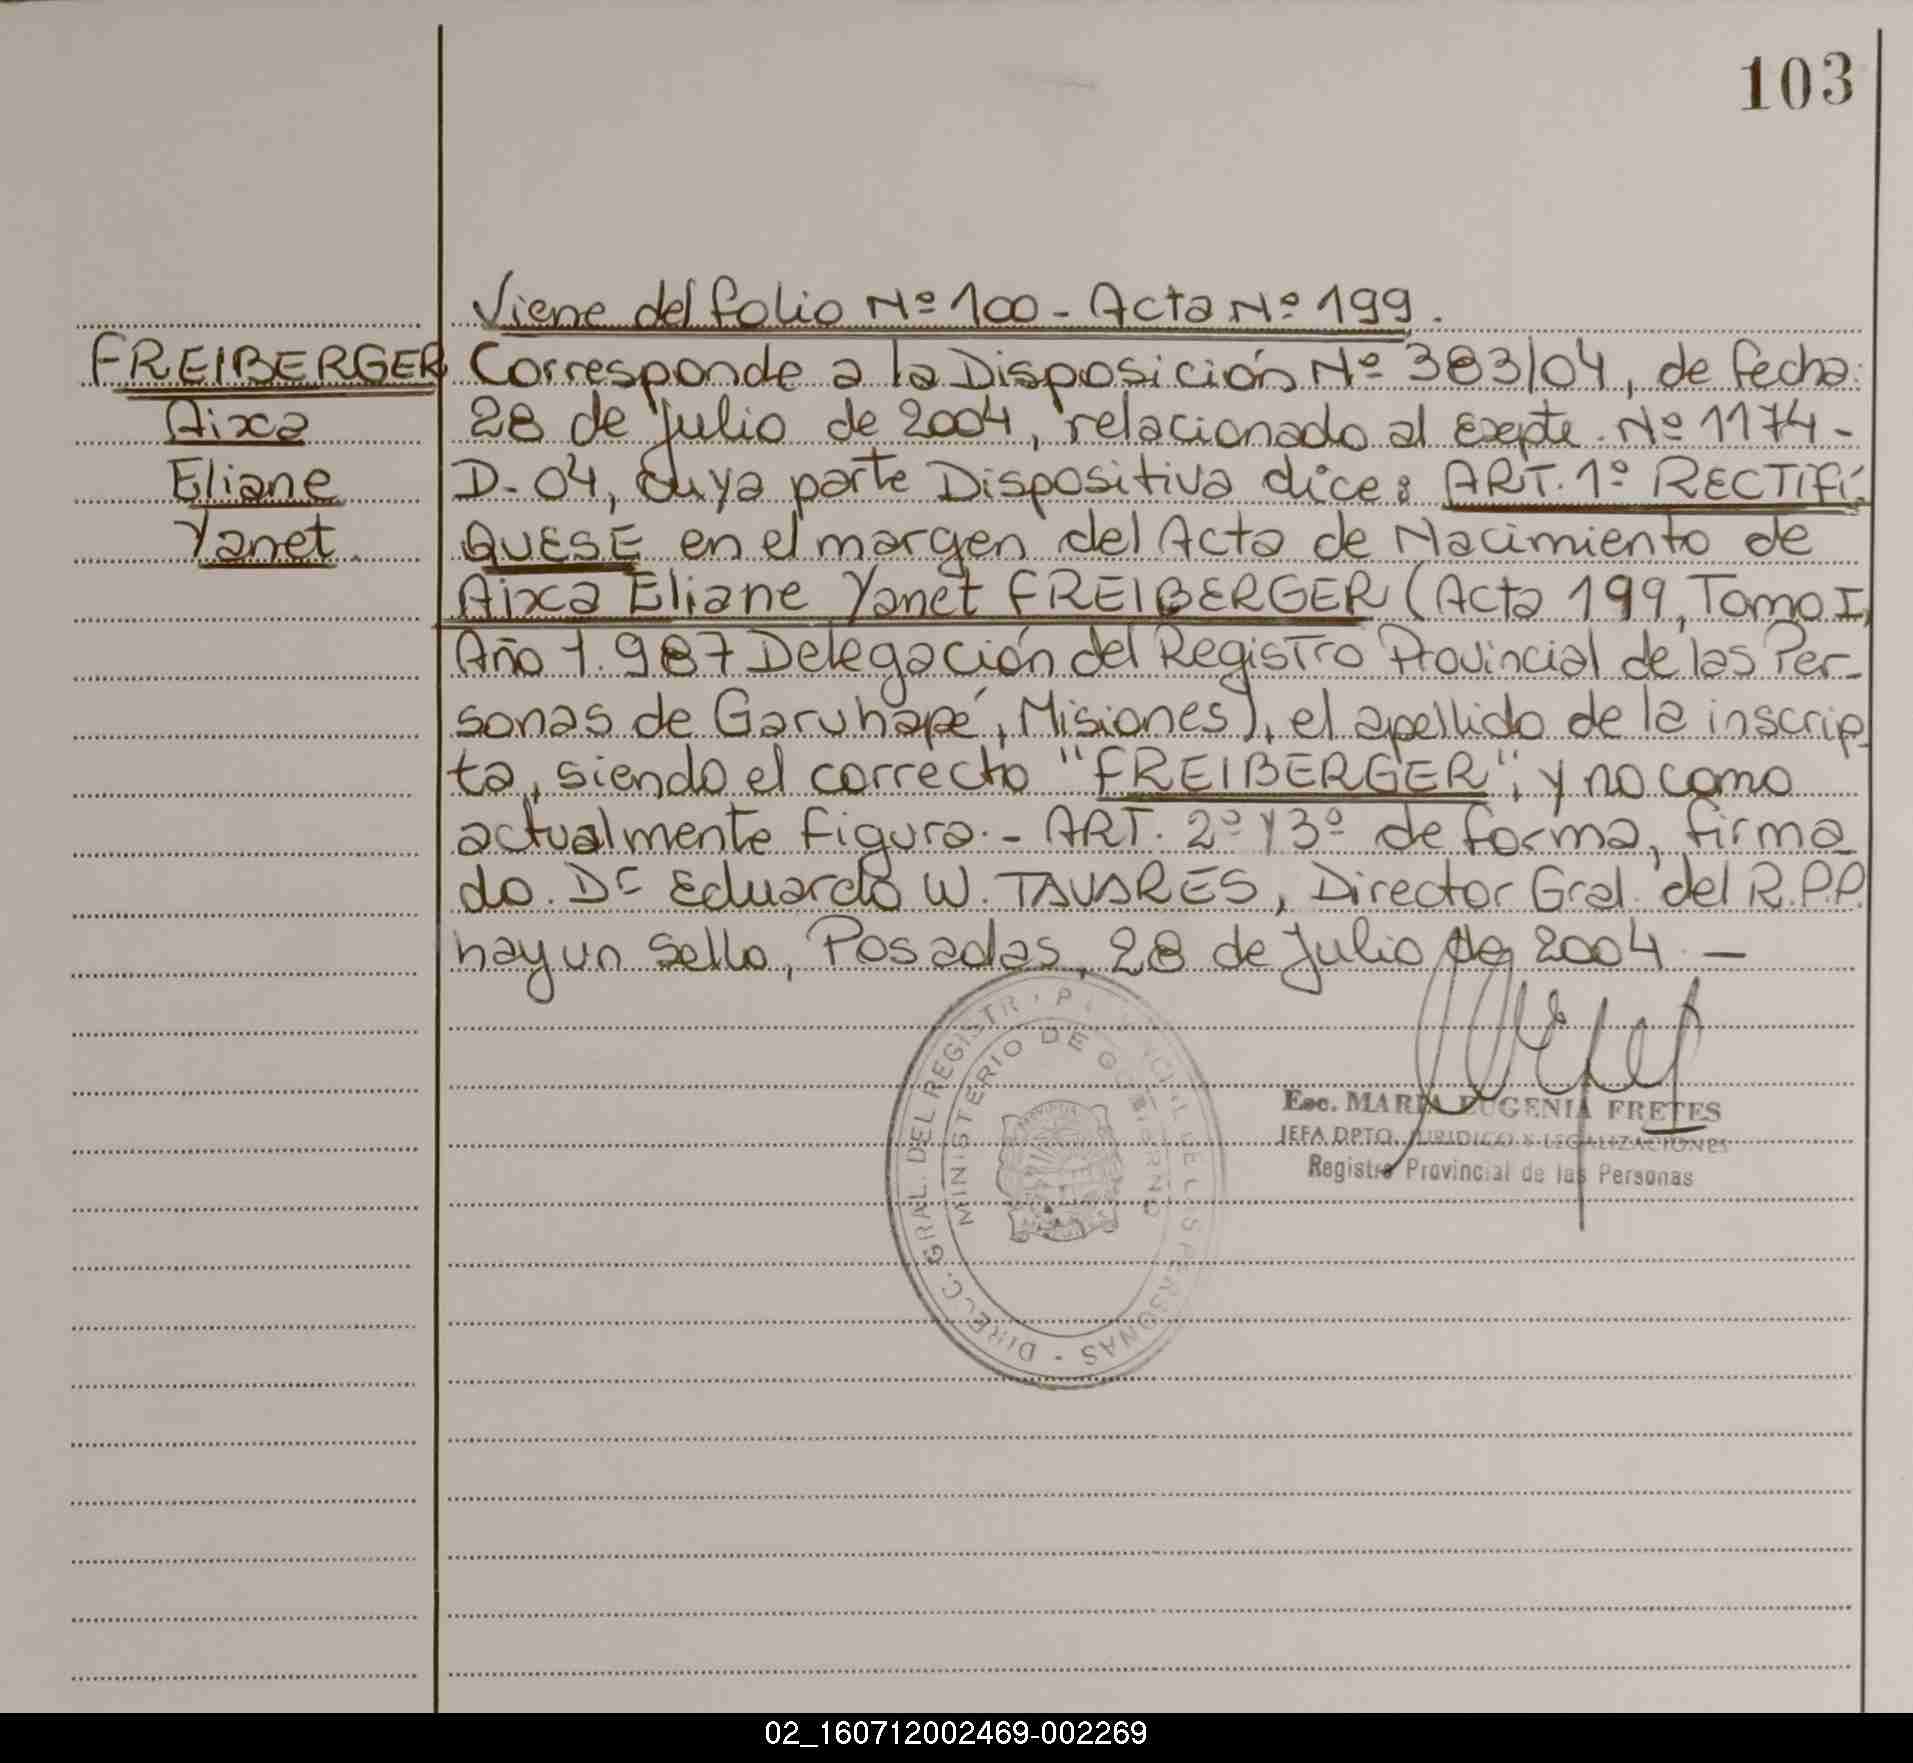 103
Viene del folio Nº 100 - Acta Nº 199.
FREIBERGER
Aixa
Eliane
Yanet.
Corresponde a la Disposición Nº 383/04, de fecha:
28 de julio de 2004, relacionado al Expte. Nº 1174-
D-04, cuya parte Dispositiva dice: ART. 1º RECTIFÍ-
QUESE en el margen del Acta de Nacimiento de
Aixa Eliane Yanet FREIBERGER (Acta 199, Tomo I,
Año 1.987 Delegación del Registro Provincial de las Per-
sonas de Garuhapé, Misiones), el apellido de la inscrip-
ta, siendo el correcto "FREIBERGER", y no como
actualmente figura.- ART. 2º y 3º de forma, firma-
do. Dr Eduardo W. TAVARES, Director Gral. del R.P.P.
hay un sello, Posadas, 28 de Julio de 2004.-
DIRECC. GRAL. DEL REGISTRO PROVINCIAL DE LAS PERSONAS -
MINISTERIO DE GOBIERNO
Esc. MARIA EUGENIA FRETES
JEFA DPTO. JURIDICO Y LEGALIZACIONES
Registro Provincial de las Personas
02_160712002469-002269